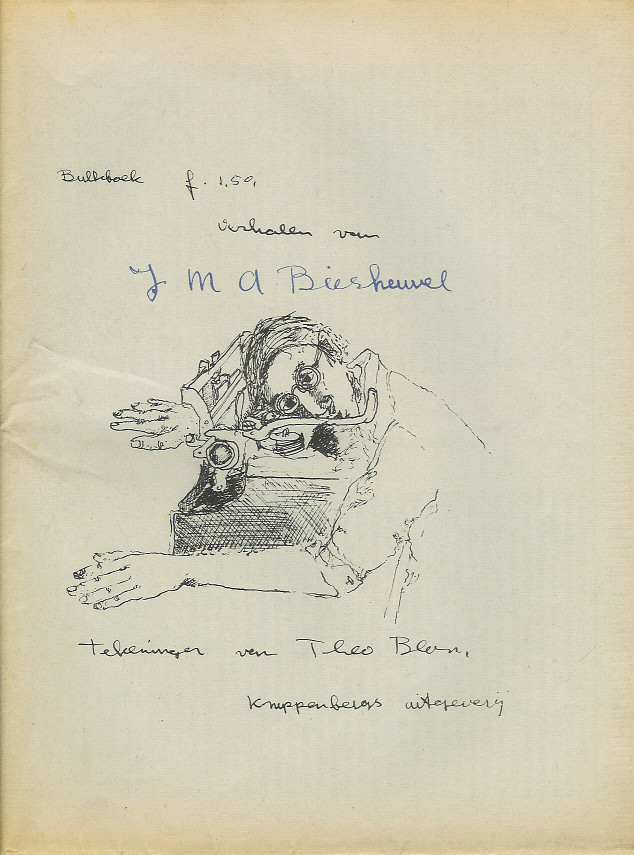 Bulkboek f. 1,50,
Verhalen van
J M A Biesheuvel
tekeningen van Theo Blom,
Knippenbergs uitgeverij